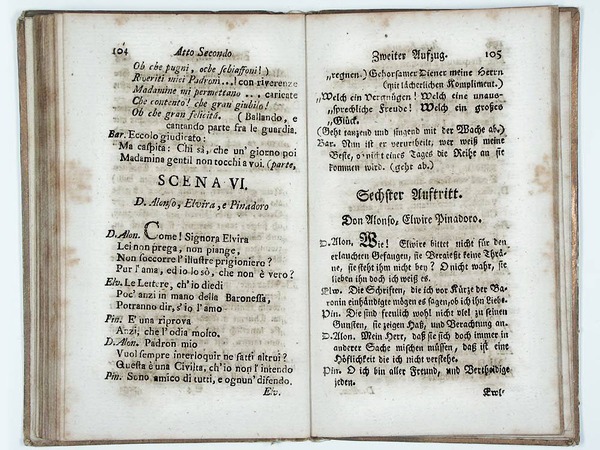 104 Atto Secondo
Oh che pugni, oche schiaffoni!)
Riveriti miei Padroni...(con riverenze
Madamine mi permettano... caricate
Che contento! che gran giubilo!
Oh che gran felicità. (Ballando, e
cantando parte fra le guardia.
Bar. Eccolo giudicato:
Ma caspita: Chi sà, che un' giorno poi
Madamina gentil non tocchi a voi. (parte.
SCENA VI.
D. Alonso, Elvira, e Pinadoro
D. Alon. Come! Signora Elvira
Lei non prega, non piange,
Non soccorre l'illustre prigioniero?
Pur l'ama, ed io lo sò, che non è vero?
Elv. Le Lettere, ch'io diedi
Poc' anzi in mano della Baronessa,
Potranno dir, s'io l'amo
Pin. E' una riprova
Anzi, che l'odia molto.
D. Alon. Padron mio
Vuol sempre interloquir ne fatti altrui?
Questa è una Civiltà, ch'io non l'intendo
Pin. Sono amico di tutti, e ognun' difendo.
Elv.
Zweiter Aufzug. 105
„regnen.) Gehorsamer Diener meine Herrn
(mit lächerlichen Kompliment.)
„Welch ein Vergnügen! Welch eine unaus-
„sprechliche Freude! Welch ein großes
„Glück.
(Geht tanzend und singend mit der Wache ab.)
Bar. Nun ist er verurtheilt, wer weiß meine
Beste, o nicht eines Tages die Reihe an sie
kommen wird. (geht ab.)
Sechster Auftritt.
Don Alonso, Elwire Pinadoro.
D. Alon. Wie! Elwire bittet nicht für den
erlauchten Gefangen, sie Vergießt keine Thrä-
ne, sie steht ihm nicht bey? O nicht wahr, sie
lieben ihn doch ich weiß es.
Elw. Die Schriften, die ich vor Kürze der Ba-
ronin einhändigte mögen es sagen, ob ich ihn Liebe.
Pin. Die sind freulich wohl nicht viel zu seinen
Gunsten, sie zeigen Haß, und Verachtung an.
D. Alon. Mein Herr, daß sie sich doch immer in
anderer Sache mischen müssen, daß ist eine
Höflichkeit die ich nicht verstehe.
Pin. O ich bin aller Freund, und Vertheidige
jeden.
Elw.